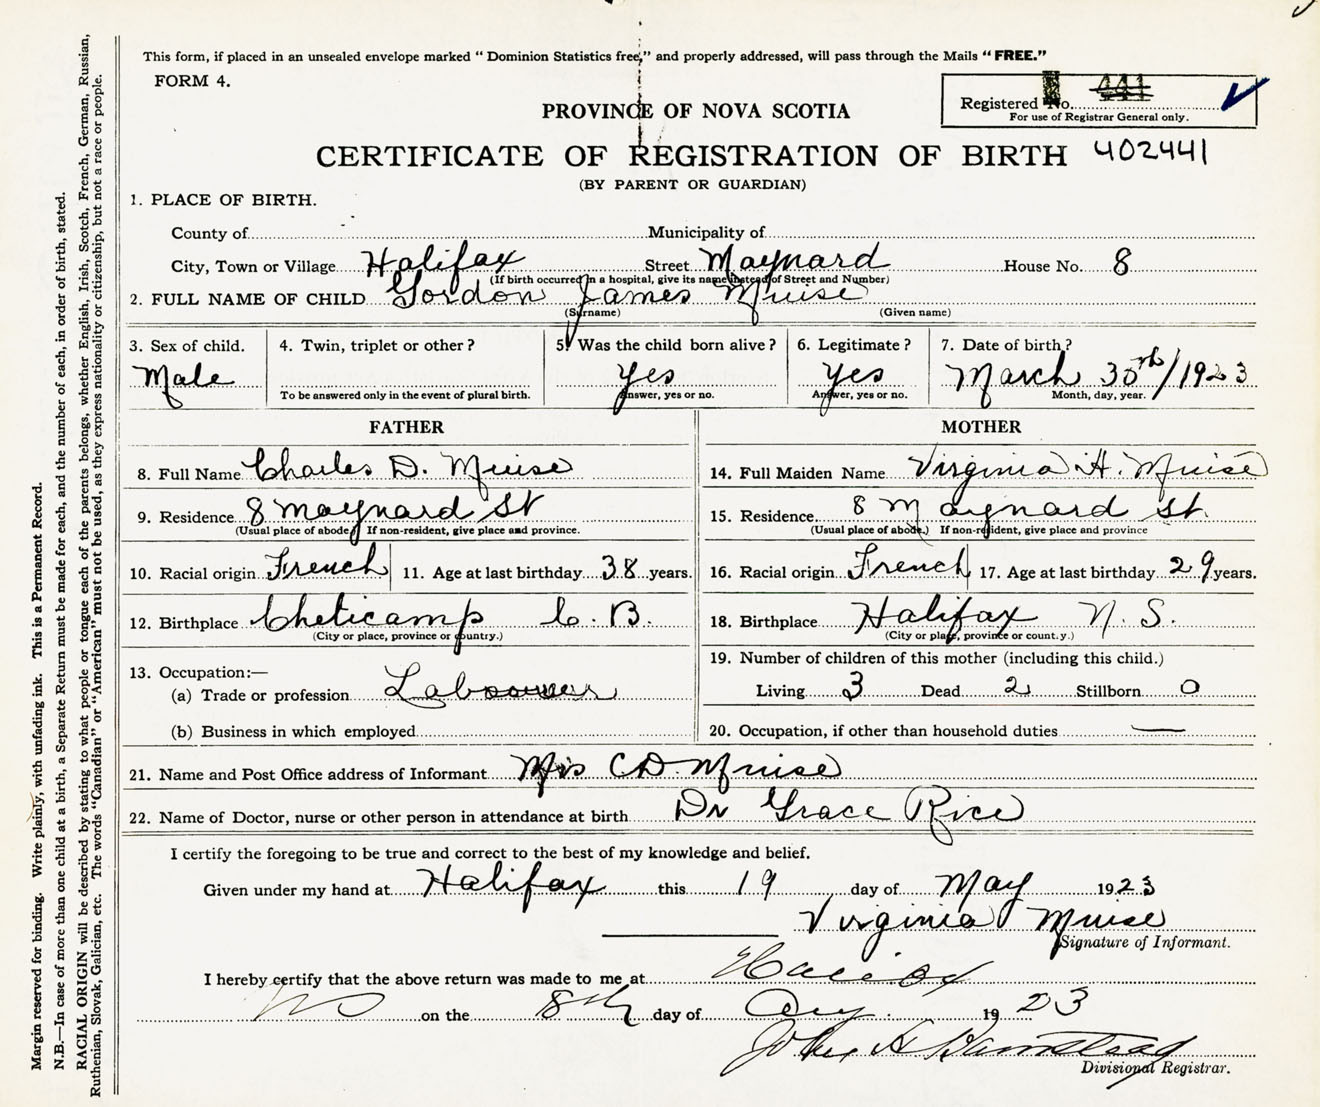 This form, if placed in an unsealed envelope marked “ Dominion Statistics free,” and properly addressed, will pass through the Mails “ FREE.”
FORM 4.
Registered No. 441
For use of Registrar General only.
PROVINCE OF NOVA SCOTIA
CERTIFICATE OF REGISTRATION OF BIRTH 402441
(BY PARENT OR GUARDIAN)
1. PLACE OF BIRTH.
County of Municipality of
City, Town or Village Halifax Street Maynard House No. 8
(If birth occurred in a hospital, give its name instead of Street and Number)
2. FULL NAME OF CHILD Gordon James Muise
(Surname) (Given name)
3. Sex of child. 4. Twin, triplet or other ? 5. Was the child born alive ? 6. Legitimate ? 7. Date of birth ?
Male Yes Yes March 30th/1923
To be answered only in the event of plural birth. Answer, yes or no. Answer, yes or no. Month, day, year.
FATHER MOTHER
8. Full Name Charles D. Muise
9. Residence 8 Maynard St
(Usual place of abode.) If non-resident, give place and province.
10. Racial origin French 11. Age at last birthday 38 years.
12. Birthplace Cheticamp C. B.
(City or place, province or country.)
13. Occupation:—
(a) Trade or profession
(b) Business in which employed
14. Full Maiden Name Virginia H. Muise
15. Residence 8 Maynard St.
(Usual place of abode.) If non-resident, give place and province
16. Racial origin French 17. Age at last birthday 29 years.
18. Birthplace Halifax N. S.
(City or place, province or count.y.)
19. Number of children of this mother (including this child.)
Living 3 Dead 2 Stillborn 0
20. Occupation, if other than household duties —
21. Name and Post Office address of Informant Mrs C D. Muise
22. Name of Doctor, nurse or other person in attendance at birth Dr Grace Rice
I certify the foregoing to be true and correct to the best of my knowledge and belief.
Given under my hand at Halifax this 19 day of May 1923
Virginia Muise
Signature of Informant.
I hereby certify that the above return was made to me at Halifax
on the 8th day of Aug. 19 23
John A
Divisional Registrar.
Margin reserved for binding. Write plainly, with unfading ink. This is a Permanent Record.
N.B.—In case of more than one child at a birth, a Separate Return must be made for each, and the number of each, in order of birth, stated.
RACIAL ORIGIN will be described by stating to what people or tongue each of the parents belongs, whether English, Irish, Scotch, French, German, Russian,
Ruthenian, Slovak, Galician, etc. The words “Canadian” or “American” must not be used, as they express nationality or citizenship, but not a race or people.